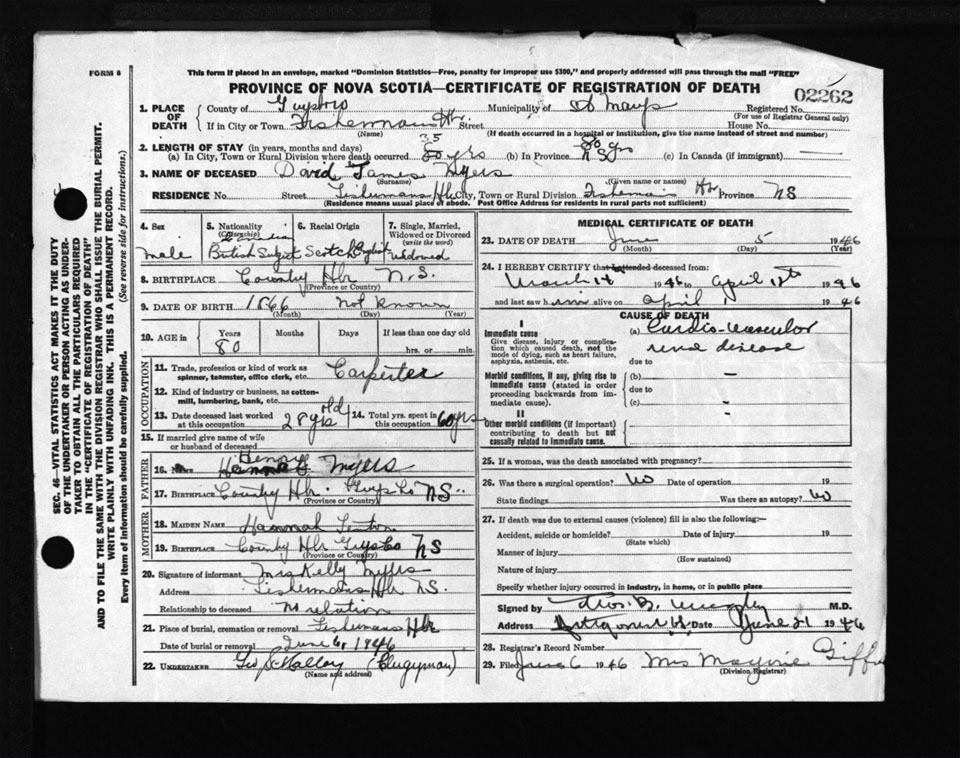 FORM 6
This form if placed in an envelope, marked "Dominion Statistics—Free, penalty for improper use $300," and properly addressed will pass through the mail "FREE"
PROVINCE OF NOVA SCOTIA—CERTIFICATE OF REGISTRATION OF DEATH
02262
1. PLACE OF DEATH
County of Guysboro Municipality of St Marys Registered No.
(For use of Registrar General only)
If in City or Town Fisherman Hr. Street House No.
(Name) (If death occurred in a hospital or institution, give the name instead of street and number)
2. LENGTH OF STAY (in years, months and days)
(a) In City, Town or Rural Division where death occurred 35 yrs (b) In Province 80 yrs (c) In Canada (if immigrant) —
3. NAME OF DECEASED David James Myers
(Surname) (Given name or names)
RESIDENCE No. Street Fishermans Hr City, Town or Rural Division Fishermans Hr Province NS
(Residence means usual place of abode. Post Office Address for residents in rural parts not sufficient)
4. Sex
male
5. Nationality
(Citizenship)
Canadian
British Subject
6. Racial Origin
Scotch English
7. Single, Married, Widowed or Divorced
(write the word)
Widowed
8. BIRTHPLACE Country Hbr N.S.
(Province or Country)
9. DATE OF BIRTH 1866 Not Known
(Month) (Day) (Year)
10. AGE in
Years Months Days If less than one day old
80 hrs. or min.
OCCUPATION
11. Trade, profession or kind of work as spinner, teamster, office clerk, etc. Carpenter
12. Kind of industry or business, as cotton-mill, lumbering, bank, etc.
13. Date deceased last worked at this occupation 78 yrs old
14. Total yrs. spent in this occupation 60 yrs
15. If married give name of wife or husband of deceased
FATHER
16. Name Henry Myers
17. Birthplace Country Hbr. Guys Co NS.
(Province or Country)
MOTHER
18. Maiden Name Hannah Fenton
19. Birthplace Country Hbr Guys Co NS
(Province or Country)
20. Signature of informant Mrs Kelly Myers
Address Fishermans Hbr NS.
Relationship to deceased No relation
21. Place of burial, cremation or removal Fishermans Hbr
Date of burial or removal June 6, 1946
22. UNDERTAKER Geo S Malloy (Clergyman)
(Name and address)
MEDICAL CERTIFICATE OF DEATH
23. DATE OF DEATH June 5 1946
(Month) (Day) (Year)
24. I HEREBY CERTIFY that I attended deceased from:
March 14 1946 to April 12th 1946
and last saw him alive on April 1 1946
CAUSE OF DEATH
I
Immediate cause (a) Cardio-vascular
Give disease, injury or complication which caused death, not the mode of dying, such as heart failure, asphyxia, asthenia, etc.
renal disease
due to
Morbid conditions, if any, giving rise to immediate cause (stated in order proceeding backwards from immediate cause).
(b) —
due to
(c) —
II
Other morbid conditions (if important) contributing to death but not causally related to immediate cause.
25. If a woman, was the death associated with pregnancy?
26. Was there a surgical operation? No Date of operation 19
State findings Was there an autopsy? No
27. If death was due to external causes (violence) fill in also the following:—
Accident, suicide or homicide? Date of injury 19
(State which)
Manner of injury
(How sustained)
Nature of injury
Specify whether injury occurred in industry, in home, or in public place
Signed by Thos. B. Murphy M.D.
Address Antigonish Date June 21 1946
28. Registrar's Record Number
29. Filed June 6 1946 Mrs Marjorie
(Division Registrar)
SEC. 46—VITAL STATISTICS ACT MAKES IT THE DUTY
OF THE UNDERTAKER OR PERSON ACTING AS UNDER-
TAKER TO OBTAIN ALL THE PARTICULARS REQUIRED
IN THE "CERTIFICATE OF REGISTRATION OF DEATH"
AND TO FILE THE SAME WITH THE DIVISION REGISTRAR WHO SHALL ISSUE THE BURIAL PERMIT.
WRITE PLAINLY WITH UNFADING INK. THIS IS A PERMANENT RECORD.
Every item of information should be carefully supplied. (See reverse side for instructions.)